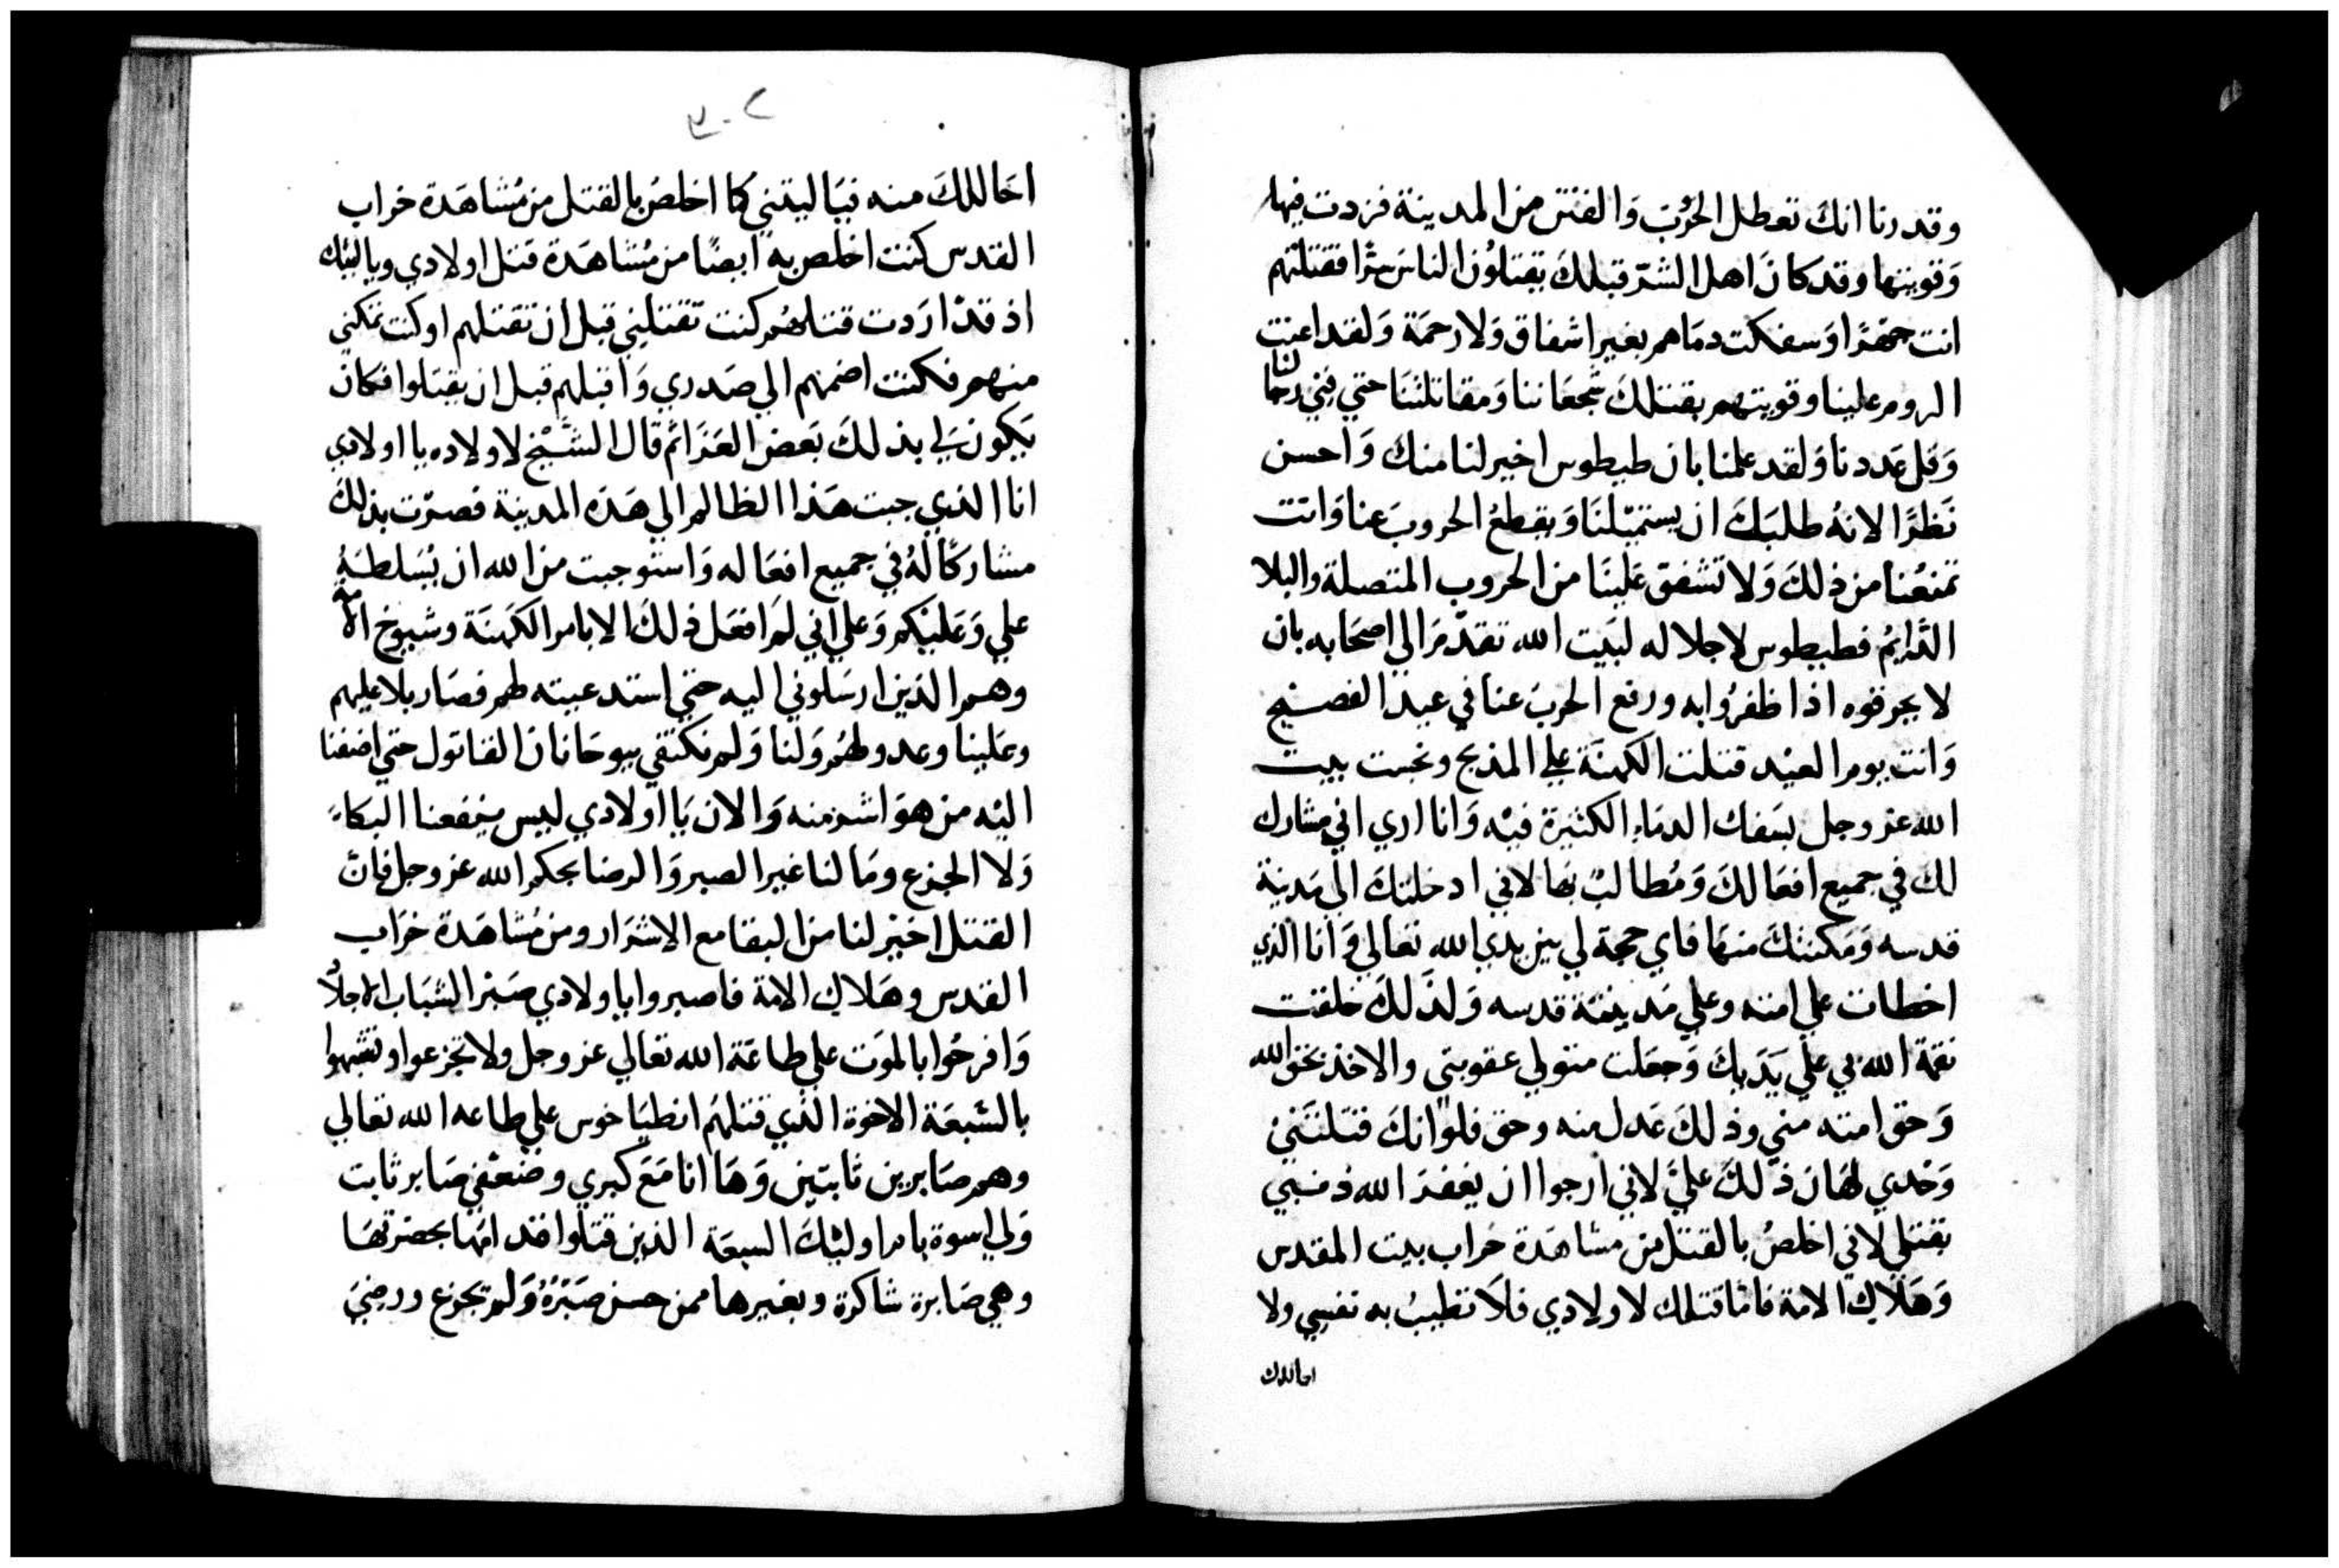 وقدرنا انكَ تعطل الحرُبَ وَالفتن من المدينة فزدت فيها
وَقويتها وقد كانَ اهل الشرّ قبلكَ يقتلوُن الناسَ سرًّا فقتلتهم
انت جهرًا وَسفكت دمَاهم بغير اشفاق وَلا رحمَة وَلقد اعنت
الروم علينا وقويتهم بقتلكَ شجعَاننا وَمقاتلتنَا حتي فني رجالنا
وَقل عَددنا وَلقد علمنا بان طيطوس اخير لنا منك وَاحسن
نَظرًا لانهُ طلبَكَ ان يستميّلنَا وَيقطعُ الحروبَ عنا وَانت
تمنعُنا من ذلكَ وَلا تشفق عَلينَا من الحروب المتصلة والبلا
الدَّايمُ فطيطوس لاجلاله لبَيت الله تقدّمَ الي اصحَابه بان
لا يحرقوه اذا ظفرُوا به ورفع الحربَ عنا في عيد الفصيح
وَانت يوم العيْد قتلت الكهنَة علي المذبح ونجست بيت
الله عز وجل بسَفك الدمَاء الكثيرة فيْه وَانا اري اني مشارك
لك في جميع افعَالكَ وَمُطالبْ بهَا لاني ادخلتكَ الي مَدينة
قدسه وَمَكنتكَ منهَا فاي حجة لي بين يدي الله تعَالي وَانا الذي
اخطات علي امته وعلي مَدينة قدسه وَلذَلكَ خلقت
نقمة الله بي علي يَدَيكَ وَجعَلت متولي عقوبتي والاخذ بحق الله
وَحق امته مني وذلكَ عَدل منه وحق فلو انكَ قتلتَني
وَحْدي لهَان ذلكَ عليَّ لاني ارجوا ان يغفرَ الله ذنبي
بقتلي لاني اخلصُ بالقتل من مشاهَدة خراب بيت المقدس
وَهَلاك الامة فامّا قتلك لاولادي فلاَ تطيبُ به نفسي ولا
احاللك
٣٠٢
احَاللكَ منه فيَا ليتني كما اخلصُ بالقتل من مُشاهَدة خراب
القدس كنت اخلص به ايضًا من مُشاهَدة قتل اولادي ويا ليتك
اذ قدْ ارَدت قتلهمُ كنت تقتلني قبل ان تقتلهم او كنت تمكني
منهم فكنت اضمهم الي صَدري وَاقبلهم قبل ان يقتلوا فكان
يَكون لي بذلكَ بَعض العَزَا ثم قال الشَّيْخ لاولاده يا اولادي
انا الذي جبت هَذا الظالم الي هَذه المدينة فصرّت بذلكَ
مشاركًا لهُ في جميع افعَاله وَاستوجبت من الله ان يُسَلطهُ
علي وَعَليْكم وَعلي اني لمَ افعَل ذلكَ الا بامر الكَهنَة وشيوخ الامة
وهم الذين ارسَلوني اليه حتي استدعيته لهم فصَار بلا عليهم
وعَلينا وعدو لهمُ وَلنا وَلم نكتفي بيوحَانان القاتول حتي اضفنا
اليْه من هوَ اشر منه وَالان يَا اولادي ليس ينفعنا البكاءَ
وَلا الجزع ومَا لنا غير الصبر وَالرضا بحكم الله عز وجل فانَّ
القتل اخيْر لنا من البقا مع الاشرَار ومن مُشاهَدة خرَاب
القدس وهَلاك الامة فاصبروا يا اولادي صَبْر الشبَاب الاجلاَّ
وَافرحُوا بالموَت علي طاعَة الله تعَالي عز وجل ولا تجزعوا وتشبهوا
بالسَّبعَة الاخوة الذي قتلهمُ انطيَاخوس علي طاعه الله تعالي
وهم صَابرين ثابتين وَهَا انا مَعَ كبري وضعْفي صَابر ثابت
وَلي اسوة بام اوليْكَ السبعَة الذين قتلوا قدامهَا بحضرتهَا
وهي صَابرة شاكرة وبغيرها ممن حسن صَبْرَهُ وَلم يَجزع ورضيَ